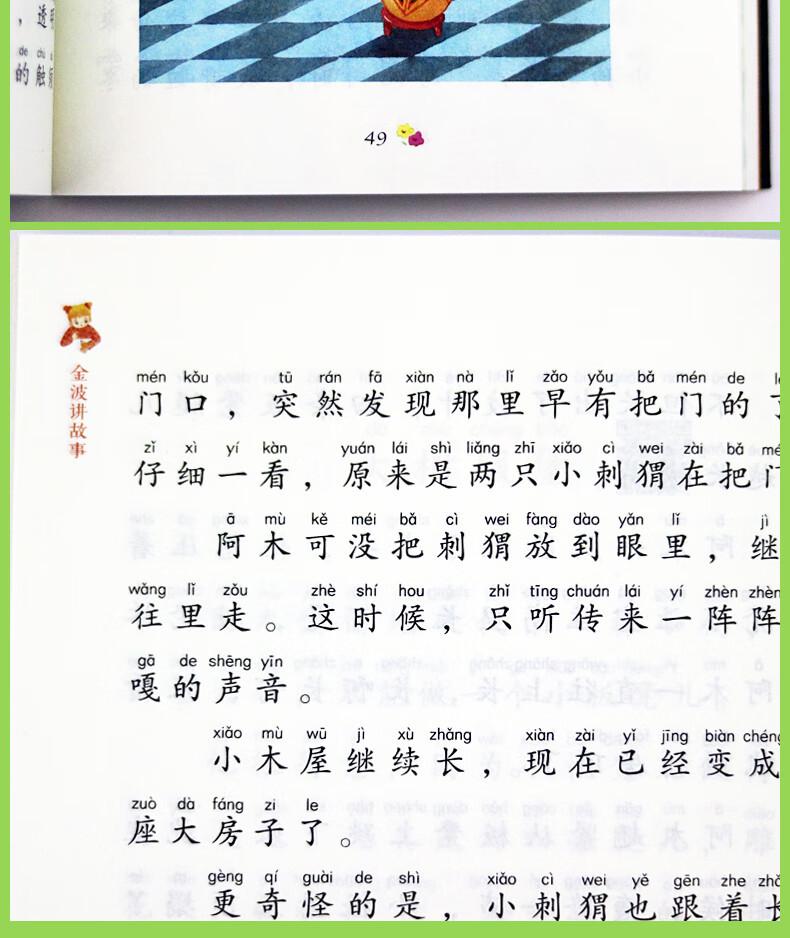 ，透
de chù
的触
49
金波讲故事
mén kǒu tū rán fā xiàn nà lǐ zǎo yǒu bǎ mén de
门口，突然发现那里早有把门的了
zǐ xì yí kàn yuán lái shì liǎng zhī xiǎo cì wei zài bǎ mé
仔细一看，原来是两只小刺猬在把门
ā mù kě méi bǎ cì wei fàng dào yǎn lǐ jì
阿木可没把刺猬放到眼里，继
wǎng lǐ zǒu zhè shí hou zhǐ tīng chuán lái yí zhèn zhèn
往里走。这时候，只听传来一阵阵
gā de shēng yīn
嘎的声音。
xiǎo mù wū jì xù zhǎng xiàn zài yǐ jīng biàn chéng
小木屋继续长，现在已经变成
zuò dà fáng zi le
座大房子了。
gèng qí guài de shì xiǎo cì wei yě gēn zhe zhǎ
更奇怪的是，小刺猬也跟着长